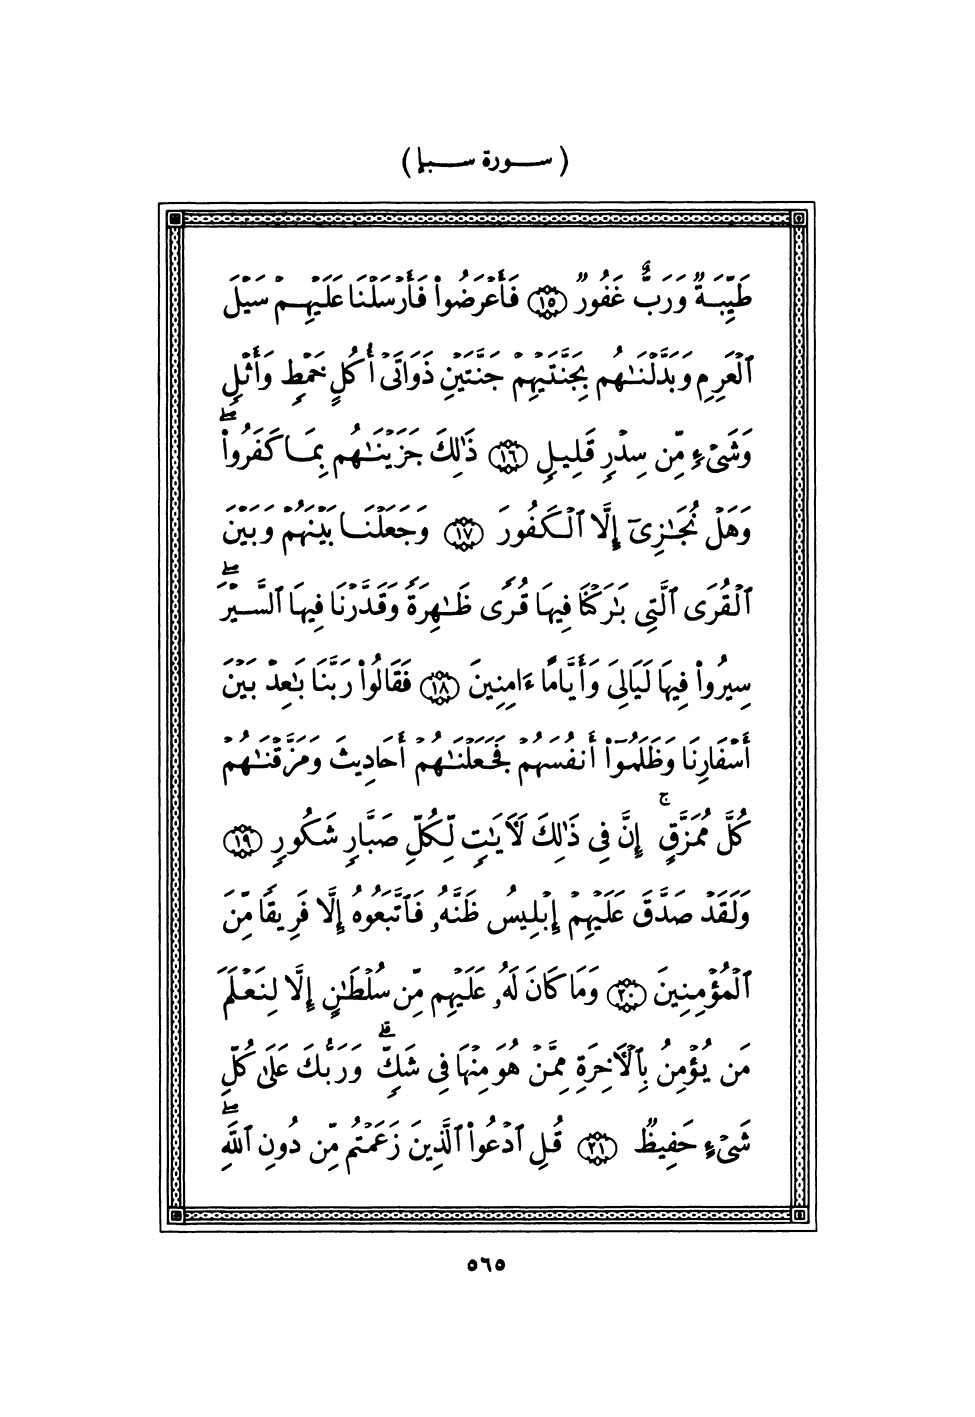 ( سورة سبإ )
طَيِّبَةٌ وَرَبٌّ غَفُورٌ ۝١٥ فَأَعْرَضُوا۟ فَأَرْسَلْنَا عَلَيْهِمْ سَيْلَ
ٱلْعَرِمِ وَبَدَّلْنَٰهُم بِجَنَّتَيْهِمْ جَنَّتَيْنِ ذَوَاتَىْ أُكُلٍ خَمْطٍ وَأَثْلٍ
وَشَىْءٍ مِّن سِدْرٍ قَلِيلٍ ۝١٦ ذَٰلِكَ جَزَيْنَٰهُم بِمَا كَفَرُوا۟ۖ
وَهَلْ نُجَٰزِىٓ إِلَّا ٱلْكَفُورَ ۝١٧ وَجَعَلْنَا بَيْنَهُمْ وَبَيْنَ
ٱلْقُرَى ٱلَّتِى بَٰرَكْنَا فِيهَا قُرًى ظَٰهِرَةً وَقَدَّرْنَا فِيهَا ٱلسَّيْرَۖ
سِيرُوا۟ فِيهَا لَيَالِىَ وَأَيَّامًا ءَامِنِينَ ۝١٨ فَقَالُوا۟ رَبَّنَا بَٰعِدْ بَيْنَ
أَسْفَارِنَا وَظَلَمُوٓا۟ أَنفُسَهُمْ فَجَعَلْنَٰهُمْ أَحَادِيثَ وَمَزَّقْنَٰهُمْ
كُلَّ مُمَزَّقٍۚ إِنَّ فِى ذَٰلِكَ لَءَايَٰتٍ لِّكُلِّ صَبَّارٍ شَكُورٍ ۝١٩
وَلَقَدْ صَدَّقَ عَلَيْهِمْ إِبْلِيسُ ظَنَّهُۥ فَٱتَّبَعُوهُ إِلَّا فَرِيقًا مِّنَ
ٱلْمُؤْمِنِينَ ۝٢٠ وَمَا كَانَ لَهُۥ عَلَيْهِم مِّن سُلْطَٰنٍ إِلَّا لِنَعْلَمَ
مَن يُؤْمِنُ بِٱلْءَاخِرَةِ مِمَّنْ هُوَ مِنْهَا فِى شَكٍّۗ وَرَبُّكَ عَلَىٰ كُلِّ
شَىْءٍ حَفِيظٌ ۝٢١ قُلِ ٱدْعُوا۟ ٱلَّذِينَ زَعَمْتُم مِّن دُونِ ٱللَّهِۖ
٥٦٥